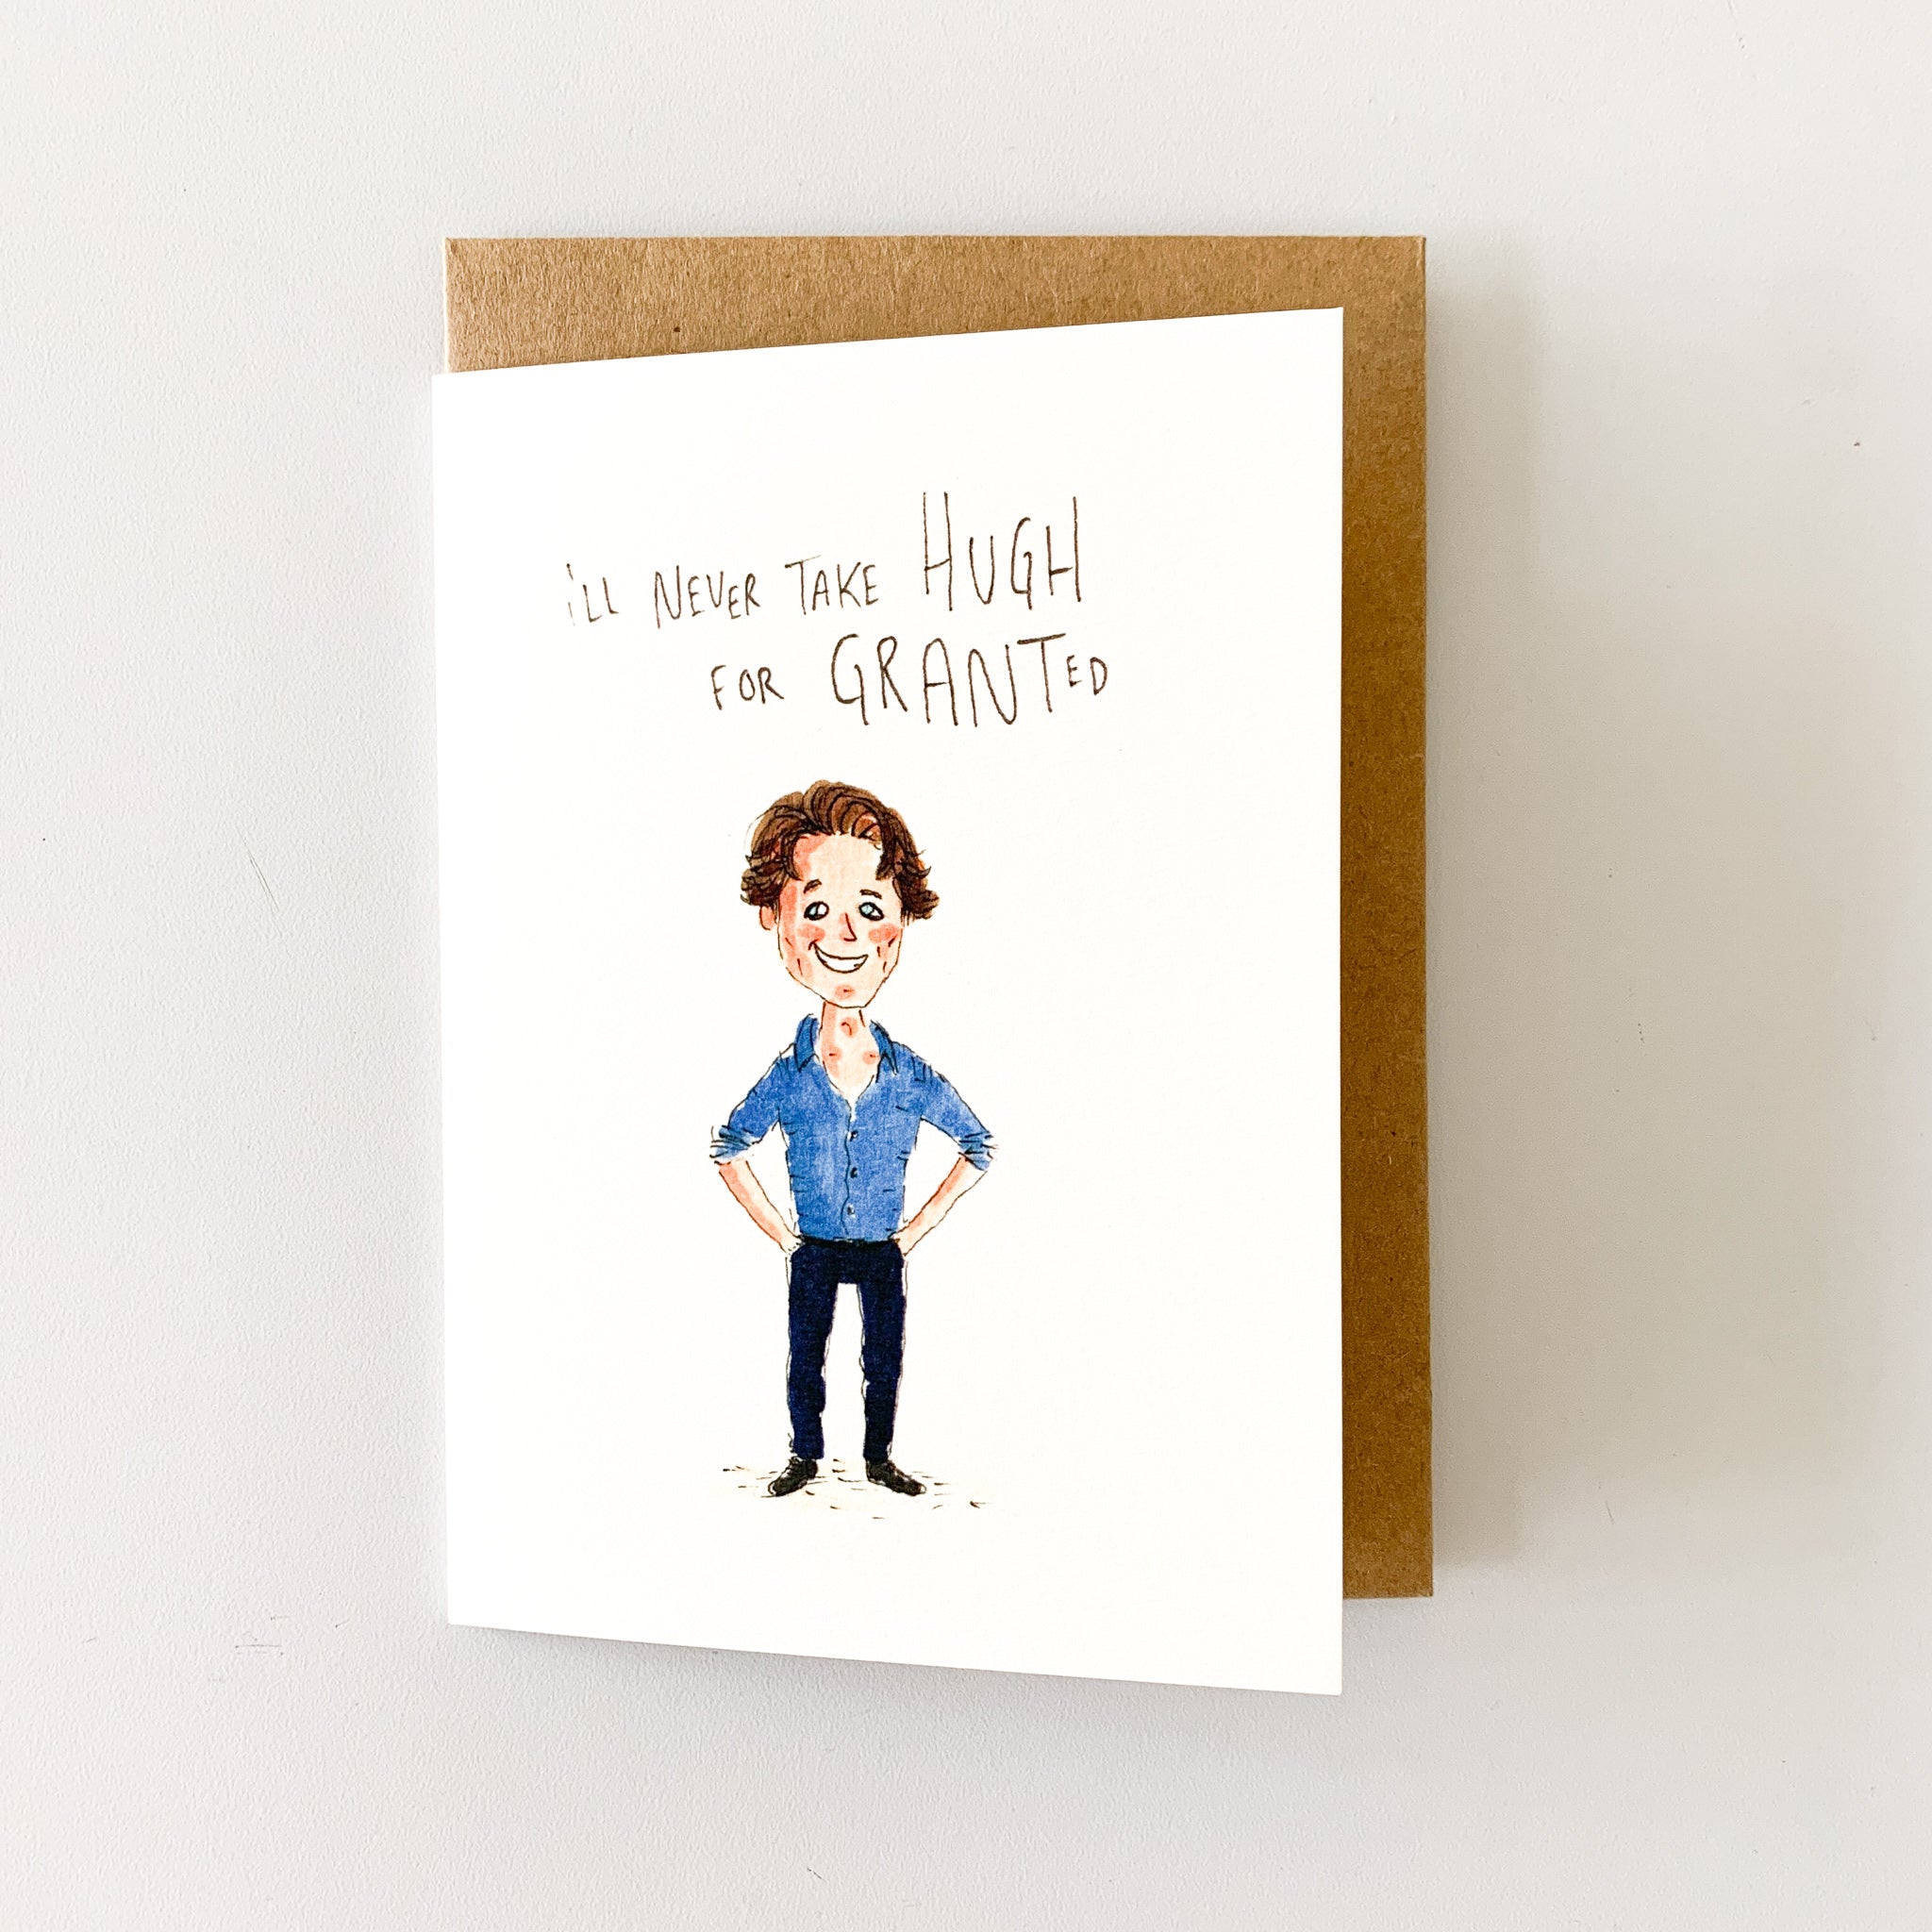 i'LL NEVER TAKE HUGH
FOR GRANTED